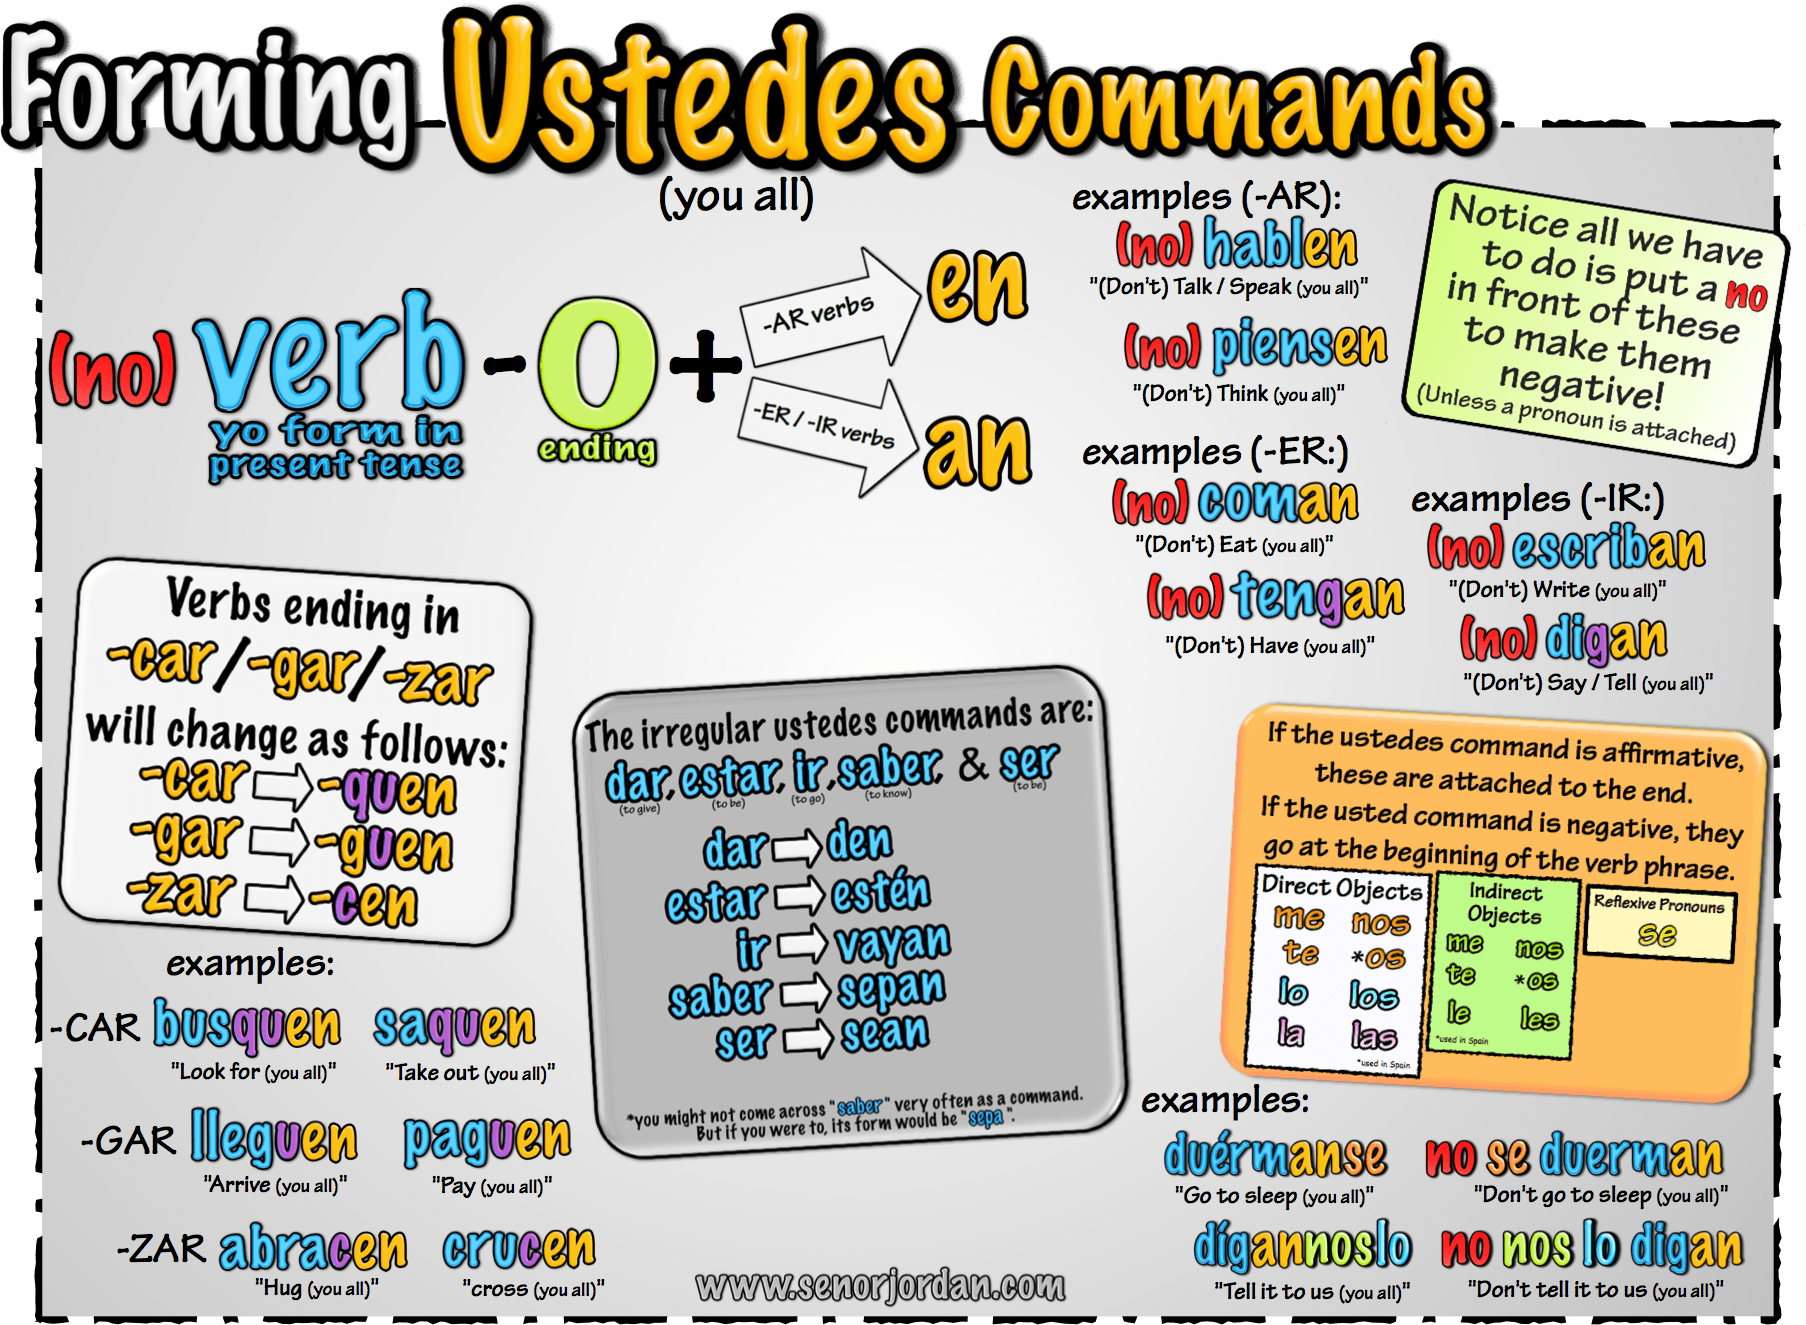 Forming Ustedes Commands
(you all)
(no) verb - o + 
yo form in
present tense
ending
-AR verbs
en
-ER / -IR verbs
an
examples (-AR):
(no) hablen
"(Don't) Talk / Speak (you all)"
(no) piensen
"(Don't) Think (you all)"
examples (-ER:)
(no) coman
"(Don't) Eat (you all)"
(no) tengan
"(Don't) Have (you all)"
Notice all we have
to do is put a no
in front of these
to make them
negative!
(Unless a pronoun is attached)
examples (-IR:)
(no) escriban
"(Don't) Write (you all)"
(no) digan
"(Don't) Say / Tell (you all)"
Verbs ending in
-car/-gar/-zar
will change as follows:
-car -quen
-gar -guen
-zar -cen
examples:
-CAR busquen saquen
"Look for (you all)" "Take out (you all)"
-GAR lleguen paguen
"Arrive (you all)" "Pay (you all)"
-ZAR abracen crucen
"Hug (you all)" "cross (you all)"
The irregular ustedes commands are:
dar, estar, ir, saber, & ser
(to give) (to be) (to go) (to know) (to be)
dar den
estar estén
ir vayan
saber sepan
ser sean
*you might not come across "saber" very often as a command.
But if you were to, its form would be "sepa".
www.senorjordan.com
If the ustedes command is affirmative,
these are attached to the end.
If the usted command is negative, they
go at the beginning of the verb phrase.
Direct Objects
me nos
te *os
lo los
la las
*used in Spain
Indirect
Objects
me nos
te *os
le les
*used in Spain
Reflexive Pronouns
se
examples:
duérmanse no se duerman
"Go to sleep (you all)" "Don't go to sleep (you all)"
dígannoslo no nos lo digan
"Tell it to us (you all)" "Don't tell it to us (you all)"